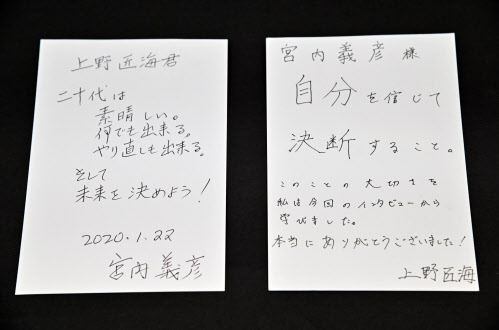 上野匠海君
二十代は
素晴しい。
何でも出来る。
やり直しも出来る。
そして
未来を決めよう!
2020.1.22
宮内義彦
宮内義彦様
自分を信じて
決断すること。
このことの大切さを
私は今回のインタビューから
学びました。
本当にありがとうございました!
上野匠海